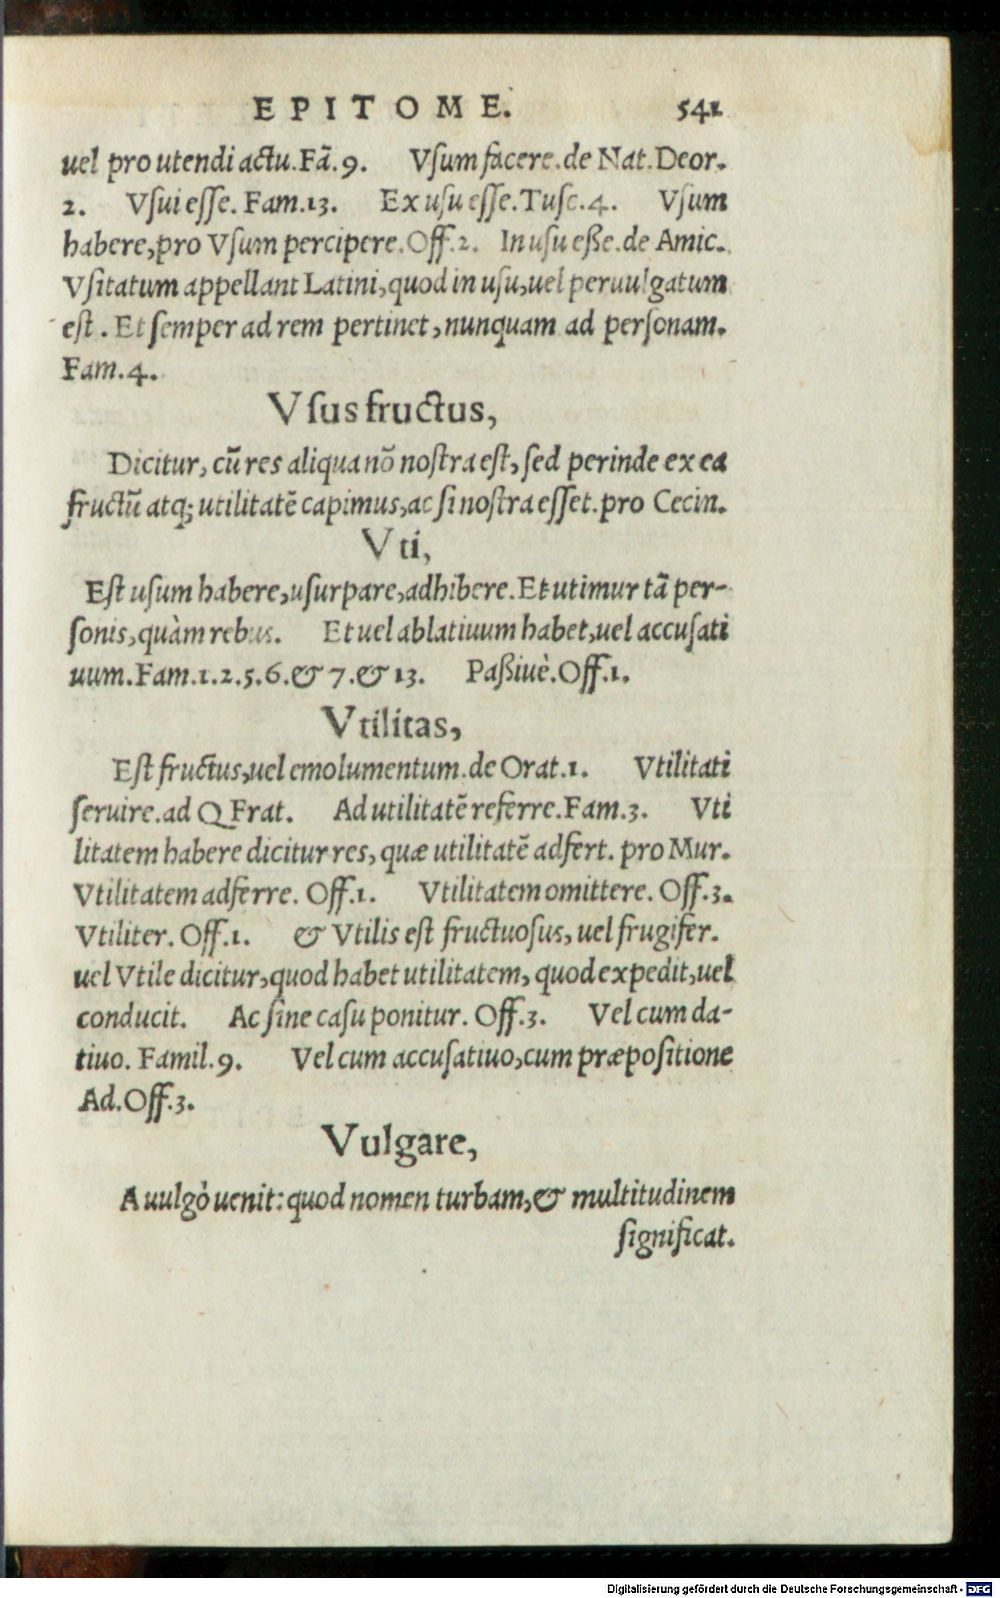 EPITOME. 541
uel pro utendi actu. Fã. 9. Vsum facere. de Nat. Deor.
2. Vsui esse. Fam. 13. Ex usu esse. Tusc. 4. Vsum
habere, pro Vsum percipere. Off. 2. In usu eße. de Amic.
Vsitatum appellant Latini, quod in usu, uel peruulgatum
est. Et semper ad rem pertinet, nunquam ad personam.
Fam. 4.
Vsus fructus,
Dicitur, cũ res aliqua nõ nostra est, sed perinde ex ea
fructũ atq; utilitatẽ capimus, ac si nostra esset. pro Cecin.
Vti,
Est usum habere, usurpare, adhibere. Et utimur tã per-
sonis, quàm rebus. Et uel ablatiuum habet, uel accusati
uum. Fam. 1. 2. 5. 6. & 7. & 13. Paßiuè. Off. 1.
Vtilitas,
Est fructus, uel emolumentum. de Orat. 1. Vtilitati
seruire. ad Q Frat. Ad utilitatẽ referre. Fam. 3. Vti
litatem habere dicitur res, quæ utilitatẽ adfert. pro Mur.
Vtilitatem adferre. Off. 1. Vtilitatem omittere. Off. 3.
Vtiliter. Off. 1. & Vtilis est fructuosus, uel frugifer.
uel Vtile dicitur, quod habet utilitatem, quod expedit, uel
conducit. Ac sine casu ponitur. Off. 3. Vel cum da-
tiuo. Famil. 9. Vel cum accusatiuo, cum præpositione
Ad. Off. 3.
Vulgare,
A uulgò uenit: quod nomen turbam, & multitudinem
significat.
Digitalisierung gefördert durch die Deutsche Forschungsgemeinschaft - DFG